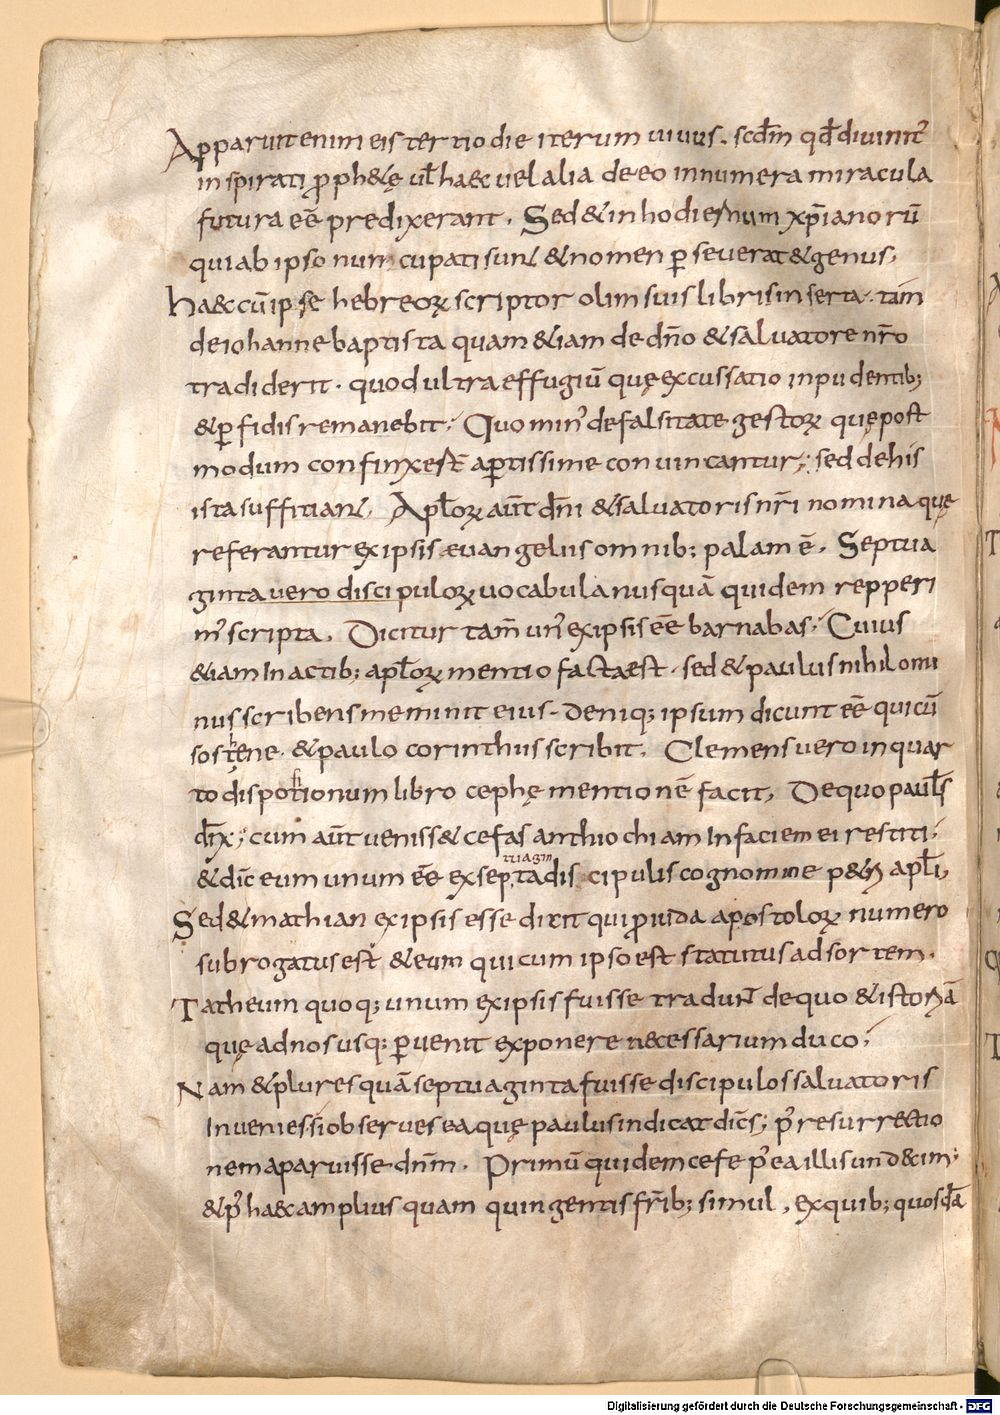 Apparuit enim eis tertio die iterum uiuus. scdm̄ qd̄ diuinit᷒
inspirati ꝓph&ę ul̄ haec uel alia de eo innumera miracula
futura eē predixerant. Sed & in hodiernum xp̄ianorū
qui ab ipso nuncupati sunt & nomen ꝑseuerat & genus.
Haec cū ipse hebreoꝝ scriptor olim suis libris inserta. tam
de iohanne baptista quam &iam de dn̄o & saluatore nr̄o
tradiderit. quod ultra effugiū quę excussatio inpudentib;
& ꝑfidis remanebit. Quo min᷒ de falsitate gestoꝝ quę post
modum confinx̄ est aꝑtissime conuincantur; sed de his
ista suffitiant. Apl̄oꝝ aūt dn̄i & saluatoris nr̄i nomina quę
referantur ex ipsis euangeliis omnib; palam ē. Septua
ginta uero discipuloꝝ uocabula nusquā quidem repperi
m᷒ scripta. Dicitur tam̄ un᷒ ex ipsis eē barnabas. Cuius
&iam in actib; apl̄oꝝ mentio facta est. sed & paulus nihilomi
nus scribens meminit eius. Deniq; ipsum dicunt eē qui cū
sostęne. & paulo corinthiis scribit. Clemens uero in quar
to dispotionum libro cephę mentionē facit. De quo paul᷒s
dix̄; cum aūt uenissȩt cefas anthiochiam in faciem ei restiti.
& dic̄ eum unum eē ex sep
tuagin
ta discipulis cognomine p&ꝝ apl̄i,
Sed & mathian ex ipsis esse dixit qui ꝓ iuda apostoloꝝ numero
subrogatus est & eum qui cum ipso est statutus ad sortem.
Tatheum quoq; unum ex ipsis fuisse tradunt de quo & istoriā
quę ad nos usq; ꝑuenit exponere necessarium duco.
Nam & plures quā septuaginta fuisse discipulos saluatoris
Inuenies si obserues ea quę paulus indicat dic̄s; p᷒ resurrectio
nem aparuisse dn̄m. Primū quidem cefe p᷒ ea illis undecim;
& p᷒ haec amplius quam quingentis fr̄ib; simul, ex quib; quosdā
Digitalisierung gefördert durch die Deutsche Forschungsgemeinschaft - DFG